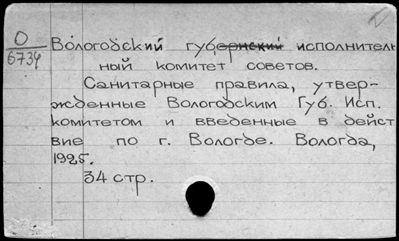 О
6734
Вологодский губернский исполнитель
ный комитет советов.
Санитарные правила, утвер-
жденные Вологодским Губ. Исп.
комитетом и введенные в дейст
вие по г. Вологде. Вологда,
1925.
34 стр.